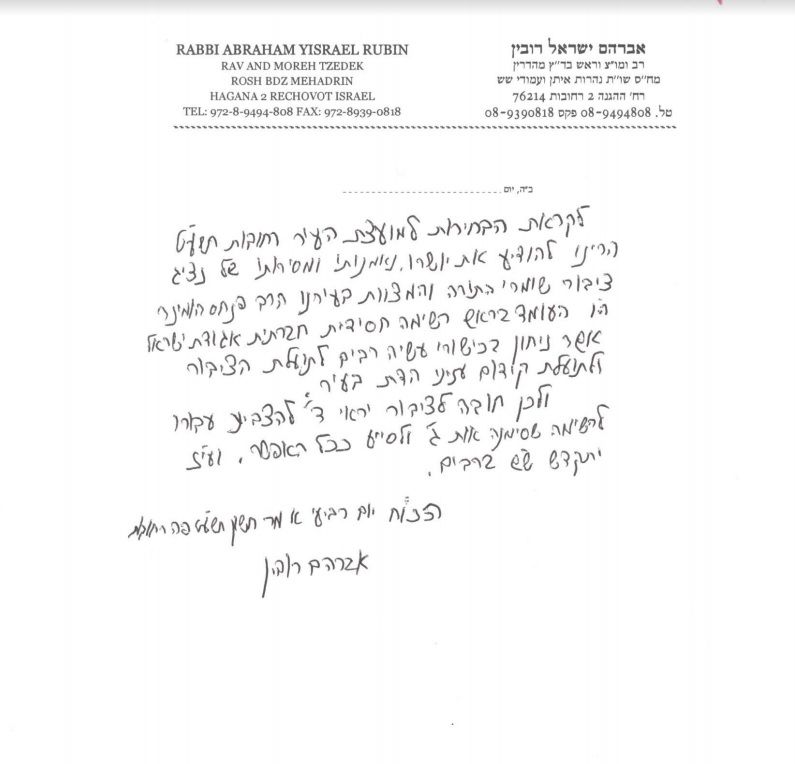 RABBI ABRAHAM YISRAEL RUBIN
RAV AND MOREH TZEDEK
ROSH BDZ MEHADRIN
HAGANA 2 RECHOVOT ISRAEL
TEL: 972-8-9494-808 FAX: 972-8939-0818
אברהם ישראל רובין
רב ומו״צ וראש בד״ץ מהדרין
מח״ס שו״ת נהרות איתן ועמודי שש
רח׳ ההגנה 2 רחובות 76214
טל. 08-9494808 פקס 08-9390818
ב״ה, יום
לקראת הבחירות למועצת העיר רחובות תשע״ט
הרינו להודיע את יושרו, נאמנותו ומסירותו של נציג
ציבור שומרי התורה והמצוות בעירנו הרב פנחס הומינר
הי״ו העומד בראש רשימה חסידית חברתית אגודת ישראל
אשר ניחון בכישורי עשיה רבים לתועלת הציבור
ולתועלת קידום עניני הדת בעיר
ולכן חובה לציבור יראי ד׳ להצביע עבורו
לרשימה שסימנה אות ג׳ ולסייע ככל האפשר. ועי״ז
יתקדש ש״ש ברבים.
הכו״ח יום רביעי א מר חשון תשע״ט פה רחובות
אברהם רובין